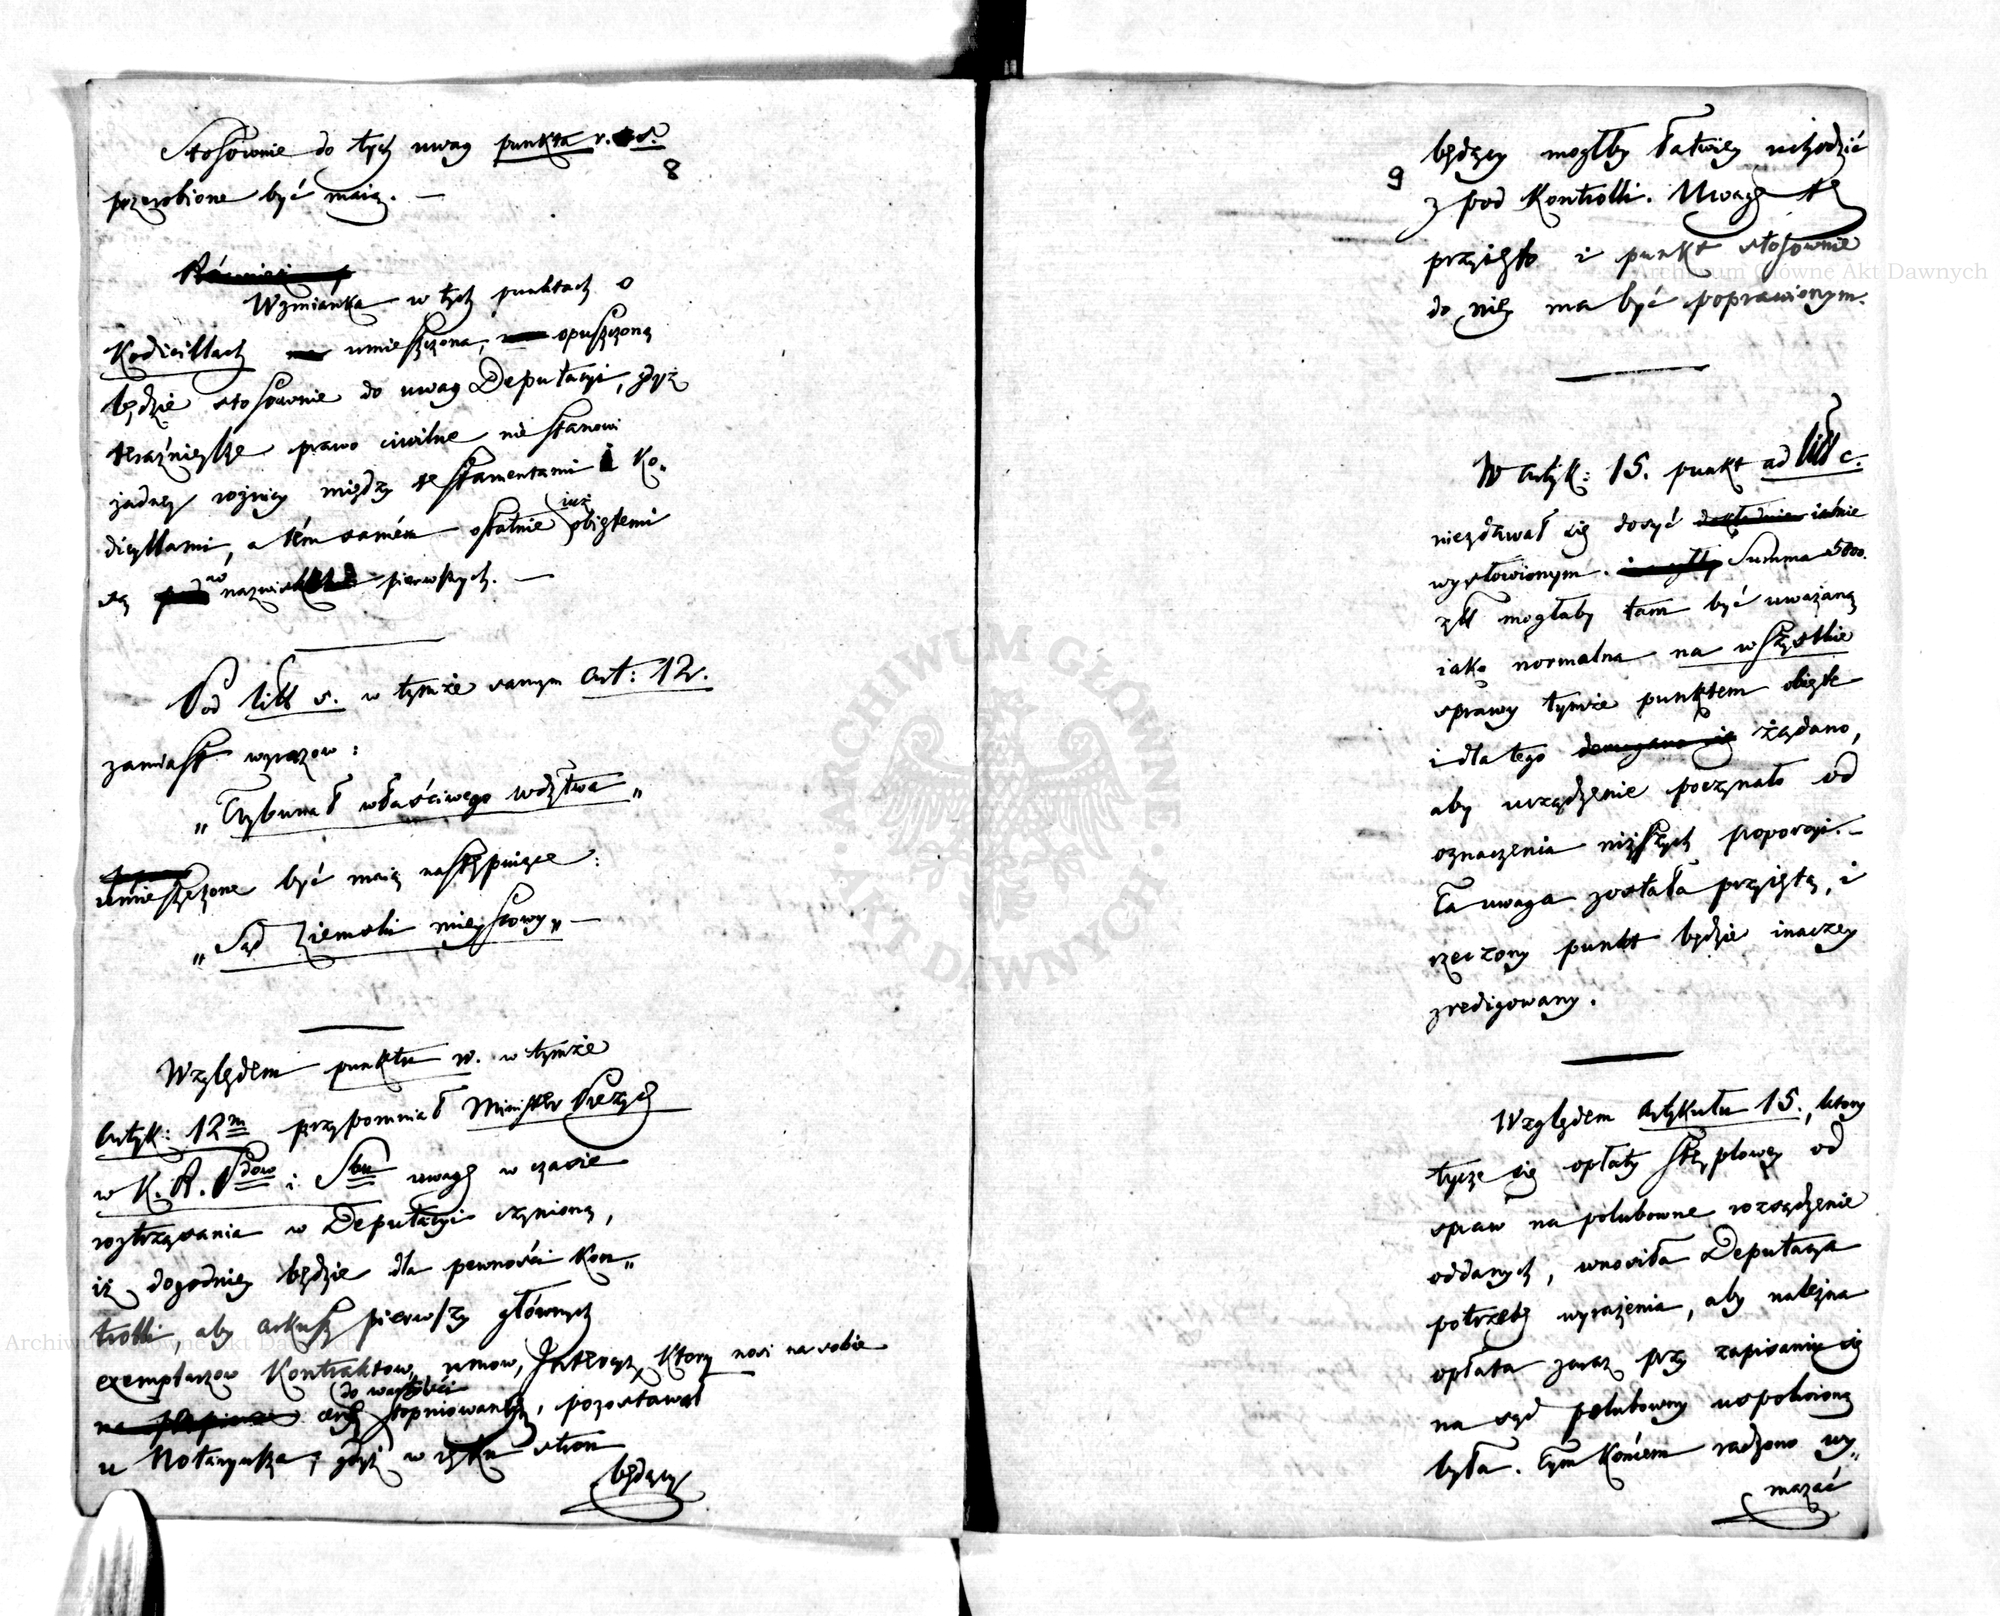 Stosownie do tych uwag punkta r. s.
8
przerobione być maią. —
Wzmianka w tych punktach o
Kodicillach umieszczona, opuszczoną
będzie stosownie do uwag Deputacyi, gdyż
teraźnieysze prawo ciwilne nie stanowi
żadney rożnicy między testamentami i Ko„
dicyllami, a tém samém ostatnie iuż obiętemi
są w nazwisku pierwszych. —
Pod litt s. w tymże samym Art: 12.
zamiast wyrazow:
„Trybunał właściwego wdztwa„
umieszczone być maią następuiące:
„Sąd Ziemski mieyscowy„ —
Względem punktu w. w tymże
Artyk: 12m przypomniał Minister Prezyd
w K. R. Pdow i Sbu uwagę w czasie
roztrząsania w Deputacyi czynioną,
iż dogodniey będzie dla pewności Kon„
trolli, aby arkusz pierwszy głównych
exemplarzow Kontraktow, umow, Intercyz, Ktory nosi na sobie
do wartości stopniowany, pozostawał
u Notaryusza, gdyż w ręku stron
będący
9
będący mogłby łatwiey uchodzić
z pod Kontrolli. Uwagę tę
przyięto i punkt stosownie
do niey ma być poprawionym.
W Artyk: 15. punkt ad litt c.
niezdawał się dosyć iaśnie
wysłowionym. Summa 5000.
złł mogłaby tam być uważaną
iako normalna na wszystkie
sprawy tymże punktem obięte
i dla tego żądano,
aby urządzenie poczynało od
oznaczenia niższych proporcyi. —
Ta uwaga została przyiętą, i
rzeczony punkt będzie inaczey
zredigowany.
Względem Artykułu 15., ktory
tycze się opłaty stęplowey od
spraw na polubowne rozsądzenie
oddanych, wnosiła Deputacya
potrzebę wyrażenia, aby należna
opłata zaraz przy zapisaniu się
na sąd polubowny uspokoioną
była. Tym końcem radzono wy„
mazać
Archiwum Główne Akt Dawnych
Archiwum Główne Akt Dawnych
ARCHIWUM GŁÓWNE
AKT DAWNYCH